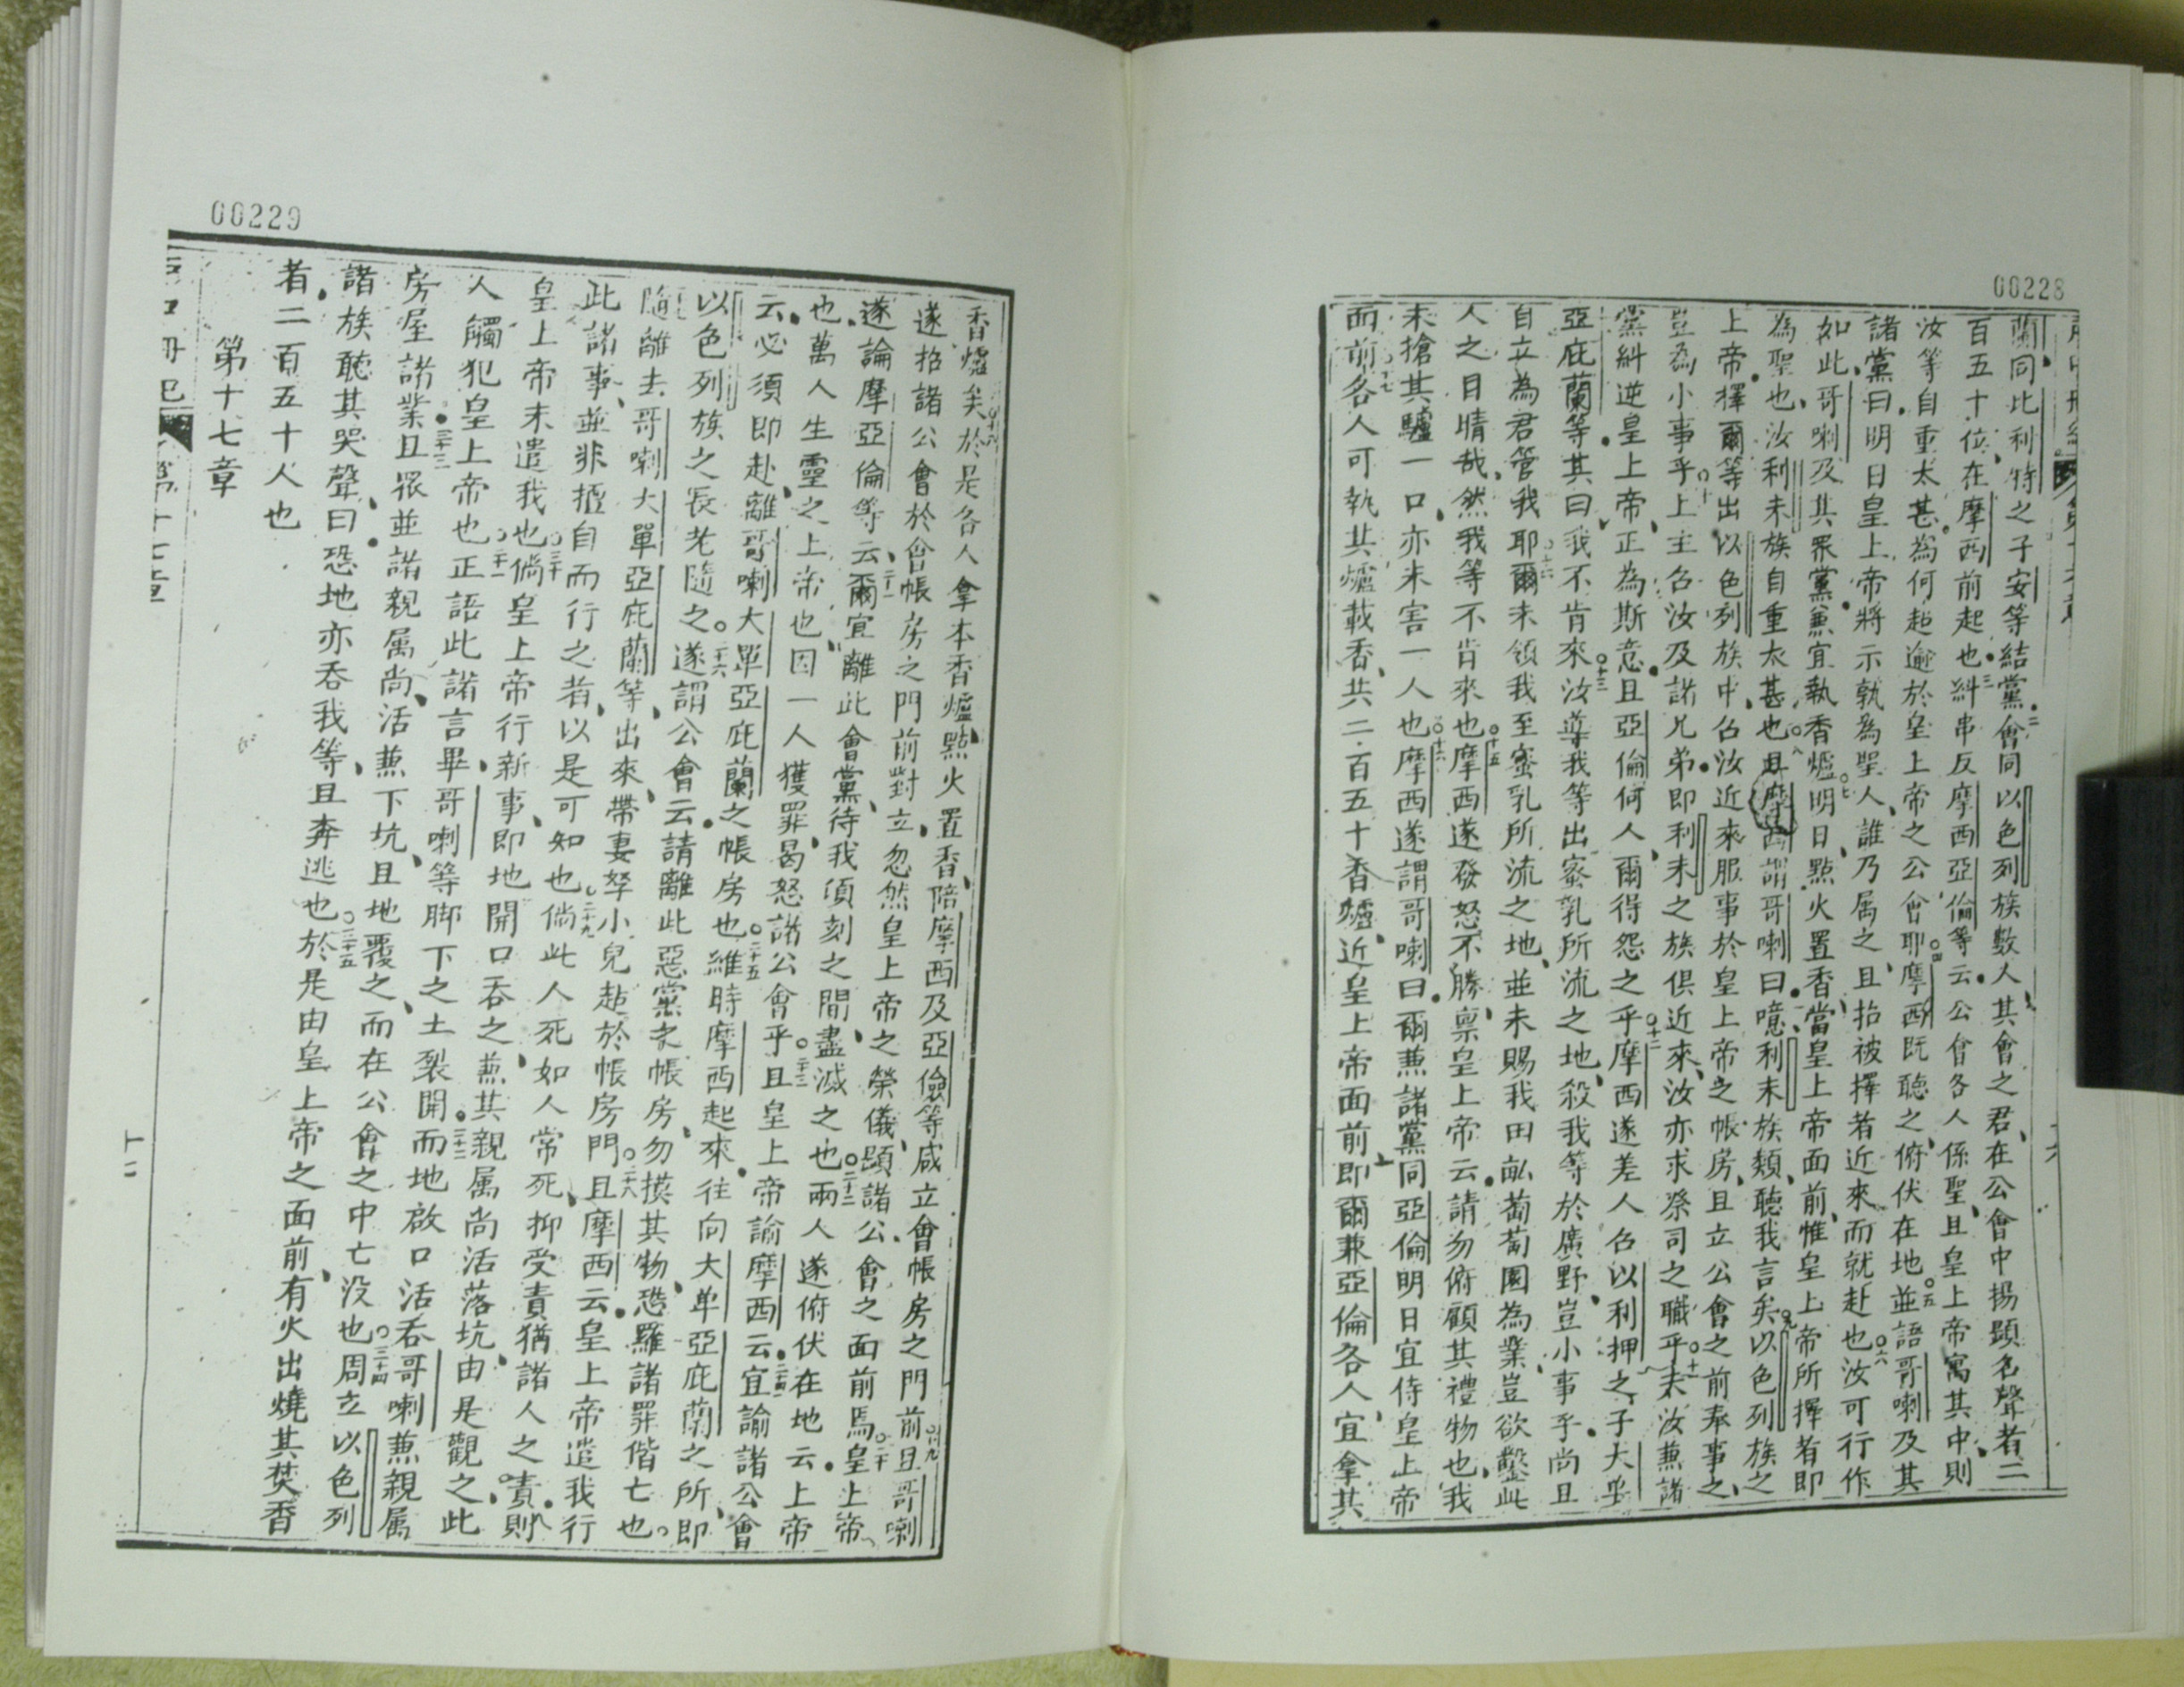 00228
蘭同比利特之子安等結黨二會同以色列族數人其會之君在公會中揚顯名聲者二
百五十位在摩西前起也三糾串反摩西亞倫等云公會各人係聖且皇上帝寓其中則
汝等自重太甚為何起逾於皇上帝之公會耶四摩西既聽之俯伏在地五並語哥喇及其
諸黨曰明日皇上帝將示孰為聖人誰乃属之且招被擇者近來而就赴也六汝可行作
如此哥喇及其眾黨兼宜執香爐七明日點火置香當皇上帝面前惟皇上帝所擇者即
為聖也汝利未族自重太甚也八且摩西謂哥喇曰噫利未族類聽我言矣九以色列族之
上帝擇爾等出以色列族中召汝近來服事於皇上帝之帳房且立公會之前奉事之
豈為小事乎十上主召汝及諸兄弟即利未之族俱近來汝亦求祭司之職乎十一夫汝兼諸
黨糾逆皇上帝正為斯意且亞倫何人爾得怨之乎十二摩西遂差人召以利押之子大單
亞庇蘭等其曰我不肯來十三汝導我等出蜜乳所流之地殺我等於廣野豈小事乎尚且
自立為君管我耶十四爾未領我至蜜乳所流之地並未賜我田畝萄萄園為業豈欲鑿此
人之目睛哉然我等不肯來也十五摩西遂發怒不勝禀皇上帝云請勿俯顧其禮物也我
未搶其驢一口亦未害一人也十六摩西遂謂哥喇曰爾兼諸黨同亞倫明日宜侍皇上帝
面前十七各人可執其爐載香共二百五十香爐近皇上帝面前即爾兼亞倫各人宜拿其
00229
香爐矣十八於是各人拿本香爐點火置香陪摩西及亞倫等咸立會帳房之門前十九且哥喇
遂招諸公會於會帳房之門前對立忽然皇上帝之榮儀顯諸公會之面前焉二十皇上帝
遂諭摩亞倫等云二十一爾宜離此會黨待我須刻之間盡滅之也二十二兩人遂俯伏在地云上帝
也萬人生靈之上帝也因一人獲罪曷怒諸公會乎二十三且皇上帝諭摩西云二十四宜諭諸公會
云必須即赴離哥喇大單亞庇蘭之帳房也二十五維時摩西起來往向大单亞庇蘭之所即
以色列族之長老隨之二十六遂謂公會云請離此惡黨之帳房勿摸其物恐羅諸罪偕亡也
隨離去哥喇大單亞庇蘭等出來帶妻孥小兒赴於帳房門二十八且摩西云皇上帝遣我行
此諸事並非擅自而行之者以是可知也二十九倘此人死如人常死抑受責猶諸人之責則
皇上帝未遣我也三十倘皇上帝行新事即地開口吞之兼其親属尚活落坑由是觀之此
人觸犯皇上帝也三十一正語此諸言畢哥喇等脚下之土裂開三十二而地啟口活吞哥喇兼親属
房屋諸業三十三且眾並諸親属尚活兼下坑且地覆之而在公會之中亡没也三十四周立以色列
諸族聽其哭聲曰恐地亦吞我等且奔逃也三十五於是由皇上帝之面前有火出燒其焚香
者二百五十人也
第十七章